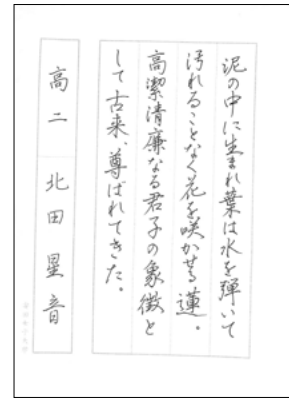 泥の中に生まれ葉は水を弾いて
汚れることなく花を咲かせる蓮。
高潔清廉なる君子の象徴と
して古来、尊ばれてきた。
高二 北田星音